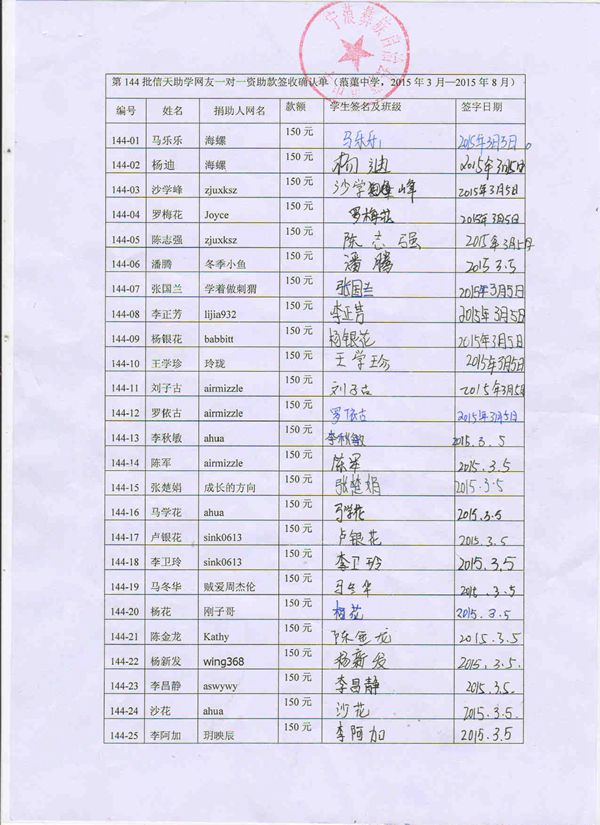 宁蒗彝族自治
第 144 批信天助学网友一对一资助款签收确认单（蒗蕖中学，2015 年 3 月—2015 年 8 月）
编号 姓名 捐助人网名 款额 学生签名及班级 签字日期
144-01 马乐乐 海螺 150 元 马乐乐 2015年3月3日
144-02 杨迪 海螺 150 元 杨迪 2015年3月5日
144-03 沙学峰 zjuxksz 150 元 沙学峰 2015年3月5日
144-04 罗梅花 Joyce 150 元 罗梅花 2015年3月5日
144-05 陈志强 zjuxksz 150 元 陈志强 2015年3月5日
144-06 潘腾 冬季小鱼 150 元 潘腾 2015.3.5
144-07 张国兰 学着做刺猬 150 元 张国兰 2015年3月5日
144-08 李正芳 lijia932 150 元 李正芳 2015年3月5日
144-09 杨银花 babbitt 150 元 杨银花 2015年3月5日
144-10 王学珍 玲珑 150 元 王学珍 2015年3月5日
144-11 刘子古 airmizzle 150 元 刘子古 2015年3月5日
144-12 罗依古 airmizzle 150 元 罗依古 2015年3月5日
144-13 李秋敏 ahua 150 元 李秋敏 2015.3.5
144-14 陈军 airmizzle 150 元 陈军 2015.3.5
144-15 张楚娟 成长的方向 150 元 张楚娟 2015.3.5
144-16 马学花 ahua 150 元 马学花 2015.3.5
144-17 卢银花 sink0613 150 元 卢银花 2015.3.5
144-18 李卫玲 sink0613 150 元 李卫玲 2015.3.5
144-19 马冬华 贼爱周杰伦 150 元 马冬华 2015.3.5
144-20 杨花 刚子哥 150 元 杨花 2015.3.5
144-21 陈金龙 Kathy 150 元 陈金龙 2015.3.5
144-22 杨新发 wing368 150 元 杨新发 2015.3.5.
144-23 李昌静 aswywy 150 元 李昌静 2015.3.5.
144-24 沙花 ahua 150 元 沙花 2015.3.5
144-25 李阿加 玥映辰 150 元 李阿加 2015.3.5